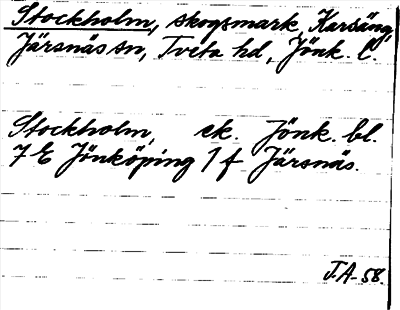 Stockholm, skogsmark, Karsäng,
Järsnäs sn, Tveta hd, Jönk. l.
Stockholm, ek. Jönk. bl.
7E Jönköping 1f Järsnäs.
J.A-58.